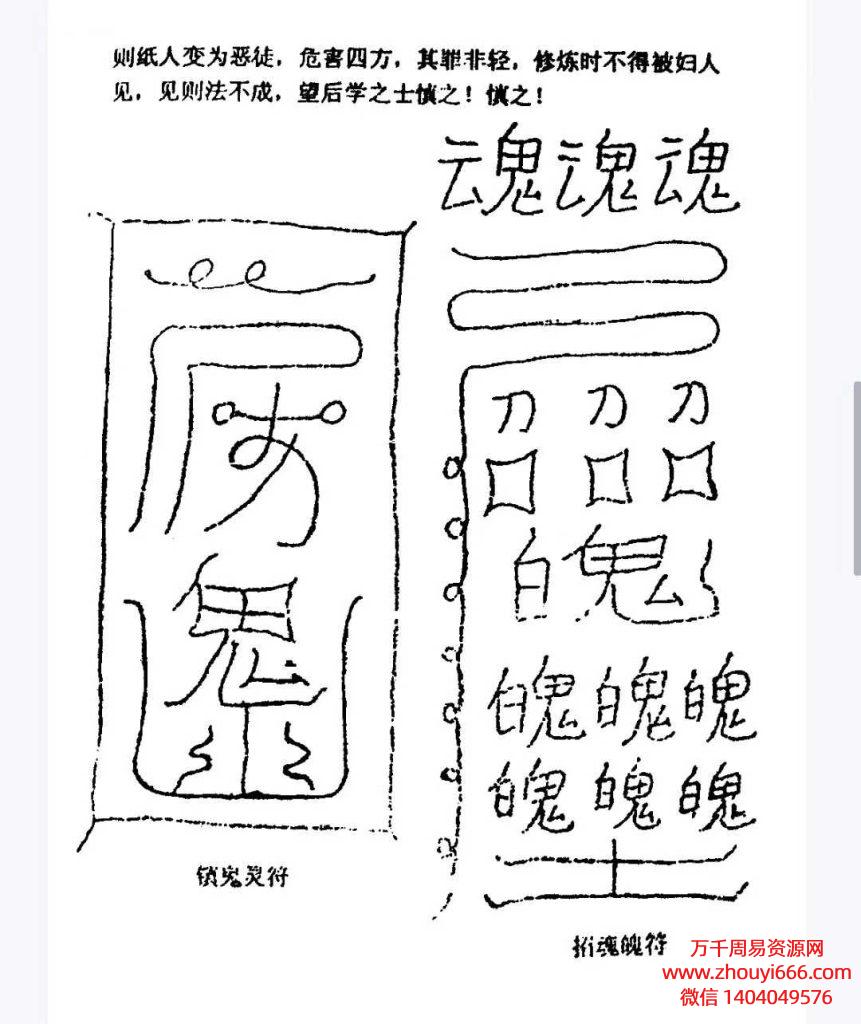 则纸人变为恶徒，危害四方，其罪非轻，修炼时不得被妇人
见，见则法不成，望后学之士慎之！慎之！
魂魂魂
刀 刀 刀
口 口 口
魄
魄魄魄
魄魄魄
鬼
锁鬼灵符
招魂魄符
万千周易资源网
www.zhouyi666.com
微信 1404049576